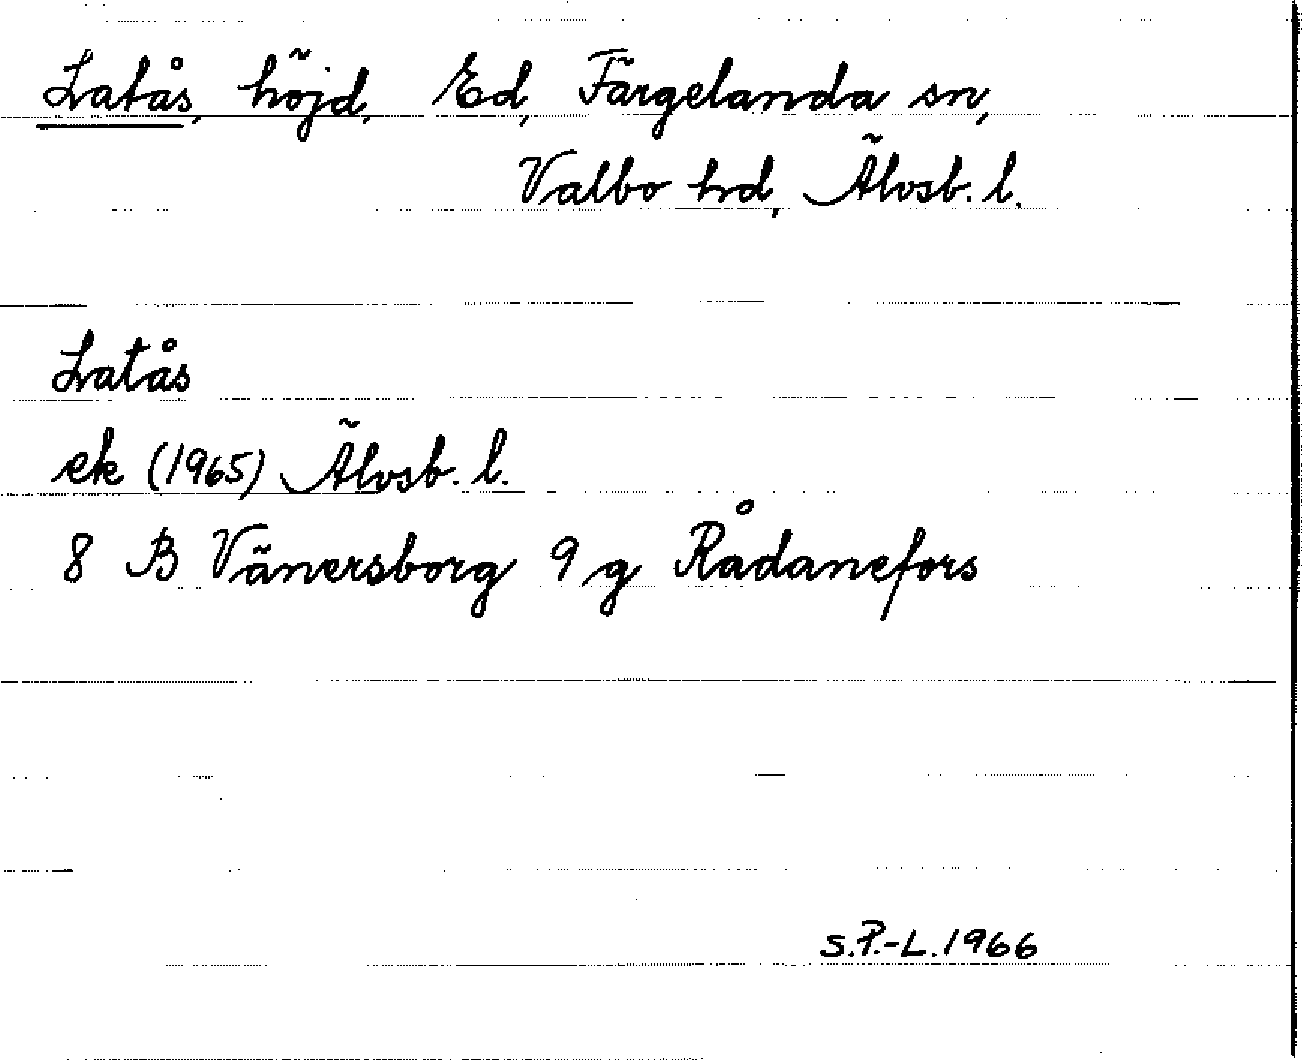 Latås, höjd, Ed, Färgelanda sn,
Valbo hd, Älvsb. l.
Latås
ek (1965) Älvsb. l.
8 B Vänersborg 9 g Rådanefors
S.P.-L. 1966